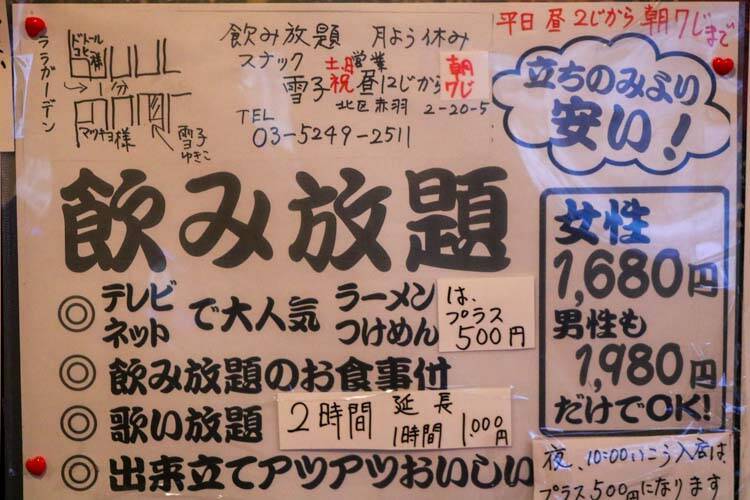 平日 昼2じから 朝7じまで
飲み放題 月よう休み
スナック 土日 営業
雪子 祝 昼12じから 朝7じ
北区赤羽 2-20-5
TEL
03-5249-2511
ララガーデン
ドトール
コヒ様
1分
マツキヨ様
雪子
ゆきこ
立ちのみより
安い!
飲み放題
◎テレビ
ネット
で大人気
ラーメン
つけめん
は、
プラス
500円
◎飲み放題のお食事付
◎歌い放題
2時間 延長
1時間 1,000円
◎出来立てアツアツおいしい
女性
1,680円
男性も
1,980円
だけでOK!
夜、10:00いこう入店は
プラス500円になります